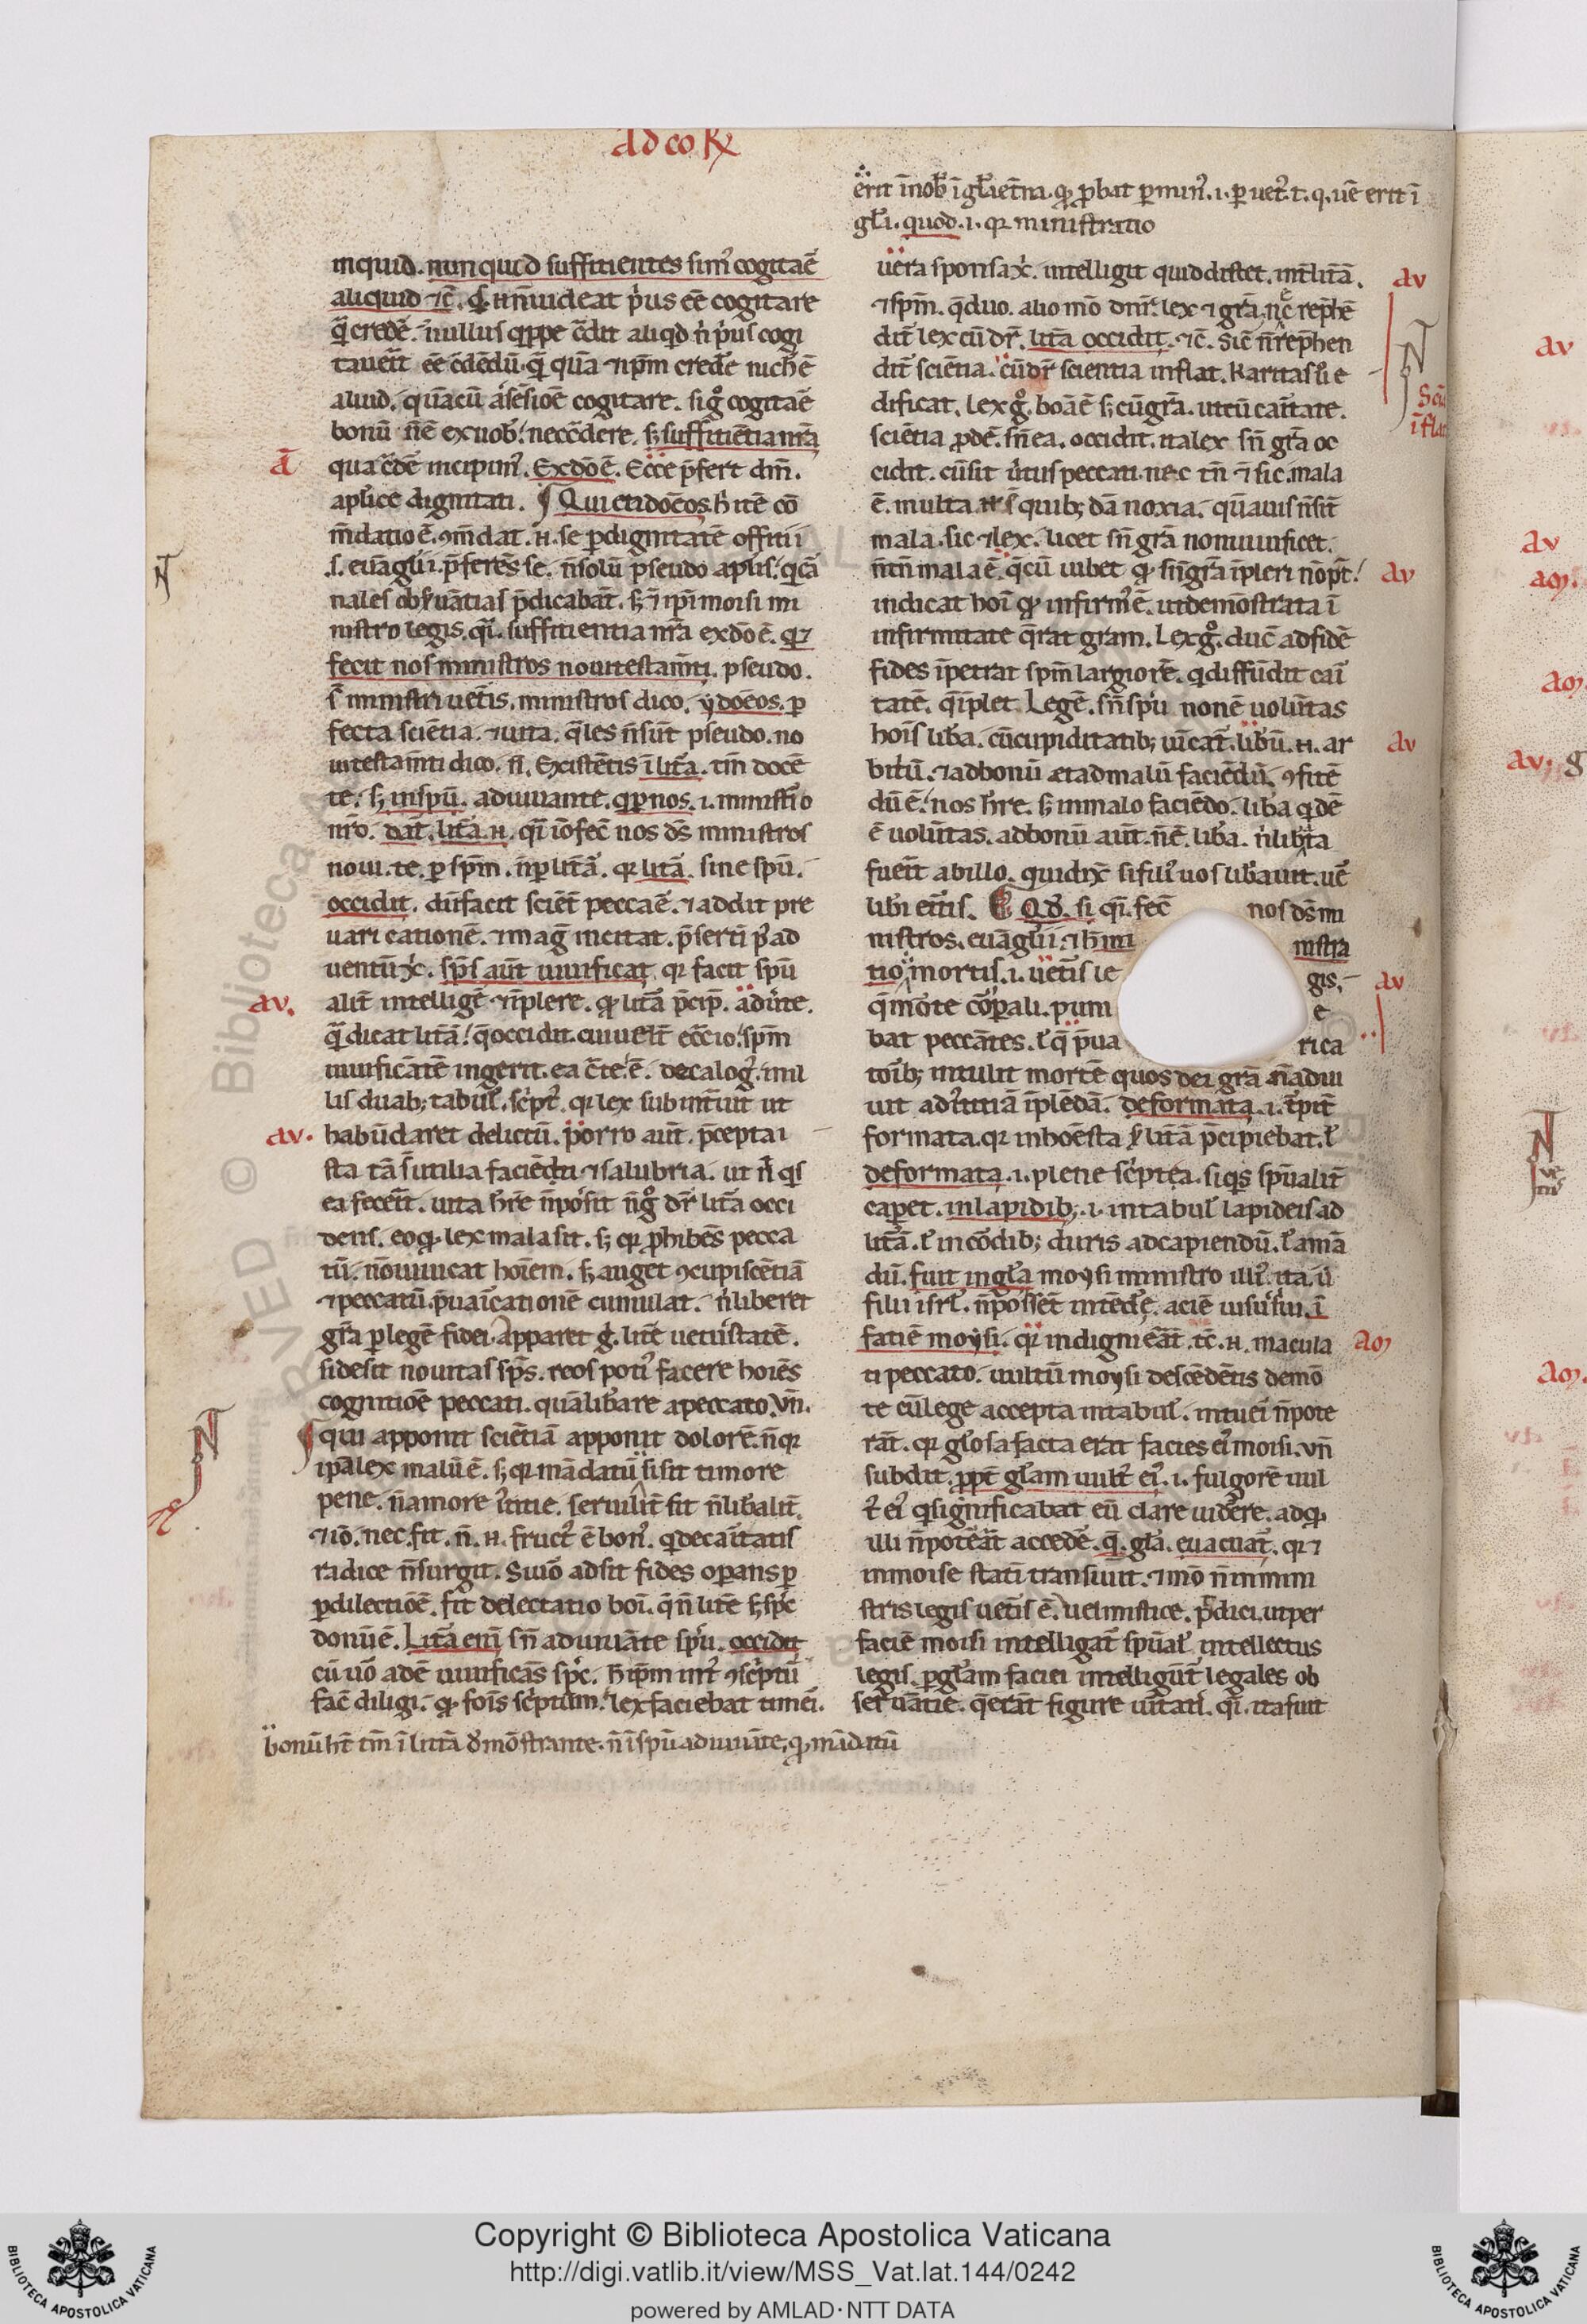 ad co R
erit in nob' ī gła et̄na. q̇ ꝓbat p min'. i. p uet'. t. q. uē erit ī
gła. quod. i. qr ministratio
inquid. nunquid suffitientes sim' cogitaē
aliquid ⁊c̄. q̇ n̄ uideat p'us eē cogitare
q̄ credē. nullus q'ppe c̄dit aliqd n̄ p'us cogi
tauerit eē c̄dēdū. q̄ quā ⁊ ip̄m crede nich' ē
aliud. quā cū asēsiōe cogitare. sig° cogitaē
bonū n̄ē ex nob'. nec c̄dere. s; suffitiētia nr̄a
qua c̄dē incipim'. Ex dō ē. Ecce p̄fert dm̄.
ap'lice dignitati. Qui et idōeos. h' itē cō
m̄datio ē. ꝯm̄dat. n. se p dignitatē offitii
.s. euāglii. p̄ferēs se. n̄ solū pseudo aplis. q' cā
nales obs'uātias p̄dicabāt. s; ⁊ ip̄i moisi mi
nistro legis. q̄i. suffitientia nr̄a ex dō ē. q' ⁊
fecit nos ministros noui testam̄ti. pseudo.
s̄ ministri uet'is. ministros dico. ydōeos. p
fecta sciētia. ⁊ uita. q̄les n̄ sūt pseudo. no
ui testam̄ti dico. n̄. Existētis ī lit̄a. tm̄ docē
te. s; in sp̄u. adiuuante. q' p nos. i. minist'io
nr̄o. dat̄. lit̄a n. q̄i iō fec̄ nos dś ministros
noui. te. p sp̄m. n̄ p lit̄ā. qr lit̄a. sine sp̄u.
occidit. dū facit sciēt peccaē. ⁊ addit pre
uari cationē. ⁊ maḡ incitat. p̄serti p' ad
uentū xc̄. sp̄s aūt uiuificat. qr facit sp̄u
av. alit̄ intelligē ⁊ īplere. q' lit̄a p̄cip̄. aduerte.
q̄ dicat lit̄ā. q̄ occidit. cui uelit ecc̄io. sp̄m
uiuificātē ingerit. ea c̄te. ē. decalog'. in il
lis duab; tabul'. sc'pt'. qr lex subintrauit ut
av. habūdaret delictū. porro aūt. p̄cepta i
sta tā s̄ utilia faciēti ⁊ salubria. ut n̄ q's
ea fecerit. uita hr̄e n̄ possit n̄ g° dr̄ lit̄a occi
dens. eo q' lex mala sit. s; qr ꝓhibēs pecca
tū. nō uiuicat hoīem. s; auget ꝯcupiscētiā
⁊ peccatū p̄uaīcatione cumulat. n̄ liberet
gr̄a p legē fidei. Apparet g°. lit̄e uetustatē.
si desit nouitas sp̄s. reos poti' facere hoīes
cognitiōe peccati. quā lib'are a peccato. vn̄.
qui apponit sciētiā apponit dolorē. n̄ qr
ipa lex malū ē. s; qr mādatū si sit timore
pene. n̄ amore iustitie. seruilit̄ fit n̄ lib'alit̄.
⁊ iō. nec fit. n̄. n. fruct' ē bon'. q' de caritatis
radice n̄ surgit. Si uō adsit fides operans p
p dilectiōē. fit delectatio boi. q̄ n̄ lit̄e s; sp̄c
donū ē. Lit̄a eni sn̄ adiuuāte sp̄u. occidit
cū uō adē uiuificās sp̄c. h' ip̄m int' ꝯsc'ptū
fac̄ diligi. q' foīs sc'ptum. lex faciebat timei.
bonū ht̄ tm̄ ī littā demōstrante. n̄ ī sp̄u adiuuāte. q' mādatū
uera sponsa x'. intelligit quid distet. int̄ lit̄ā. av
⁊ sp̄m. q̄ duo. alio mō dnr̄ lex ⁊ gr̄a. nc̄ rep̄hē
dit̄ lex cū dr̄. lit̄a occidit. ⁊c̄. Sic n̄ rep̄hen
dit̄ sciētia. cū dr̄ scientia inflat. Karitas u' e
dificat. lex g°. bona ē s; cū gr̄a. ut cū caritate.
sciētia ꝓdē. sn̄ ea. occidit. na lex sn̄ gr̄a oc
cidit. cū sit u'tus peccati. nec tn̄ ⁊ sic. mala
ē. multa n. s̄ quib; dā noxia. quāuis n̄ sit
mala. sic ⁊ lex. licet sn̄ gr̄a non uiuificet.
n̄ tn̄ mala ē. q̄ cū iubet q' sn̄ gr̄a īpleri nō pt̄. av
indicat hoī q' infirm' ē. ut demōstrata ī
infirmitate q̄rat gram. Lex g°. duc̄ ad fidē
fides īpetrat sp̄m largiorē. q' diffūdit cari
tatē. q̄ īplet. Legē. sn̄ sp̄u non ē uolūtas
hoīs lib'a. cū cupiditatib; uīcat'. lib'ū. n. ar av
bit'ū. ⁊ ad bonū et ad malū faciēdū. ꝯfitē
dū ē. nos hr̄e. s; in malo faciēdo. lib'a q'dē
ē uolūtas. ad bonū aūt. n̄ ē. lib'a. n̄ lib'ata
fuerit ab illo. qui dix̄ si fili' uos lib'auit. uē
lib'i eritis. Q. d. si q̄i. fec̄ nos dś mi
nistros. euāglii. ⁊ h' mi nistra
tio mortis. i. uet'is le gis. av
q̄ morte corporali. pum e
bat peccātes. t q̄ p̄ua rica
toīb; intulit mortē quos dei gr̄a n̄ adiu
uit ad iustitiā īplēdā. deformata. i. t'pit'
formata. qr inhoēsta s' lit̄ā p̄cipiebat. t
deformata. i. plene sc'pta. si q's sp̄ualit̄
caperet. in lapidib;. i. in tabul' lapideis ad
lit̄ā. t in cordib; duris ad capiendū. t amā
dū. fuit in gła moysi ministro illi'. ita. u'
filii isrl'. n̄ possēt intēde. aciē uisus sui. ī
fatiē moysi. qr indigni erāt. tc̄. n. macula am
ti peccato. uultū moysi descēdētis de mō
te cū lege accepta in tabul'. intuei n̄ pote
rāt. qr głosa facta erat facies ei' moisi. vn̄
subdit. ꝓpt̄ głam uult' ei'. i. fulgorē uul
t' ei' q' significabat eū clare uidere. ad q'
illi n̄ poterāt accedē. q̄. gła. euacuat'. qr ⁊
in moise stati transiuit. ⁊ mō n̄ in mini
stris legis uet'is ē. uel mistice. p̄dici. ut per
faciē moisi intelligat̄ sp̄ual' intellectus
legis. p głam faciei intelligūt legales ob
seruātie. q̄ erāt figure uitati. q̄i. ita fuit
Copyright © Biblioteca Apostolica Vaticana
http://digi.vatlib.it/view/MSS_Vat.lat.144/0242
powered by AMLAD·NTT DATA
BIBLIOTECA APOSTOLICA VATICANA
BIBLIOTECA APOSTOLICA VATICANA